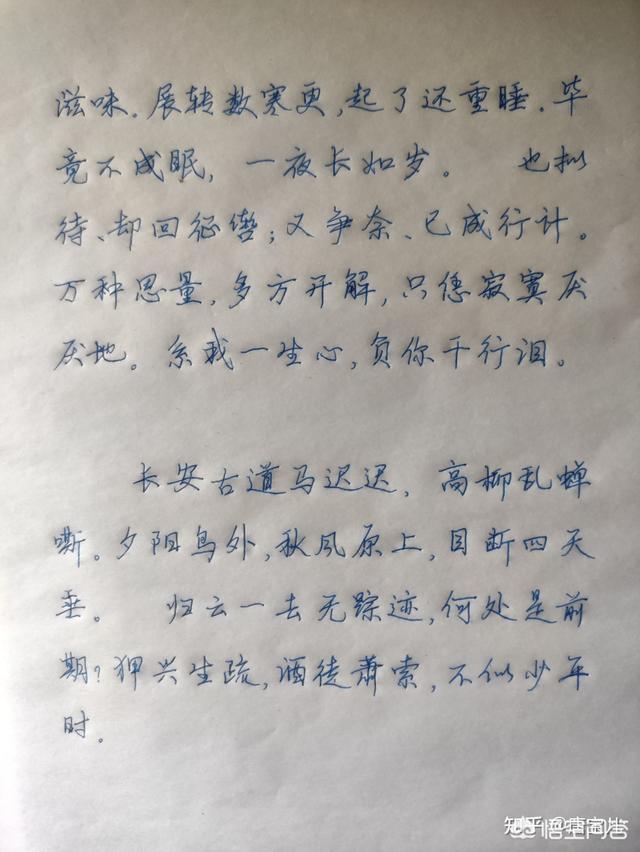 滋味。展转数寒更，起了还重睡。毕
竟不成眠，一夜长如岁。 也拟
待、却回征辔；又争奈、已成行计。
万种思量，多方开解，只恁寂寞厌
厌地。系我一生心，负你千行泪。
长安古道马迟迟，高柳乱蝉
嘶。夕阳鸟外，秋风原上，目断四天
垂。 归云一去无踪迹，何处是前
期？狎兴生疏，酒徒萧索，不似少年
时。
知乎
悟空问答